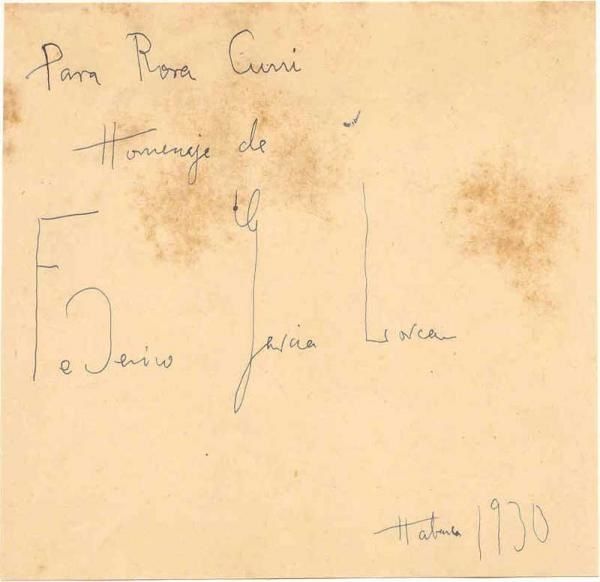 Para Rosa Curri
Homenaje de
Federico Garcia Lorca
Habana 1930